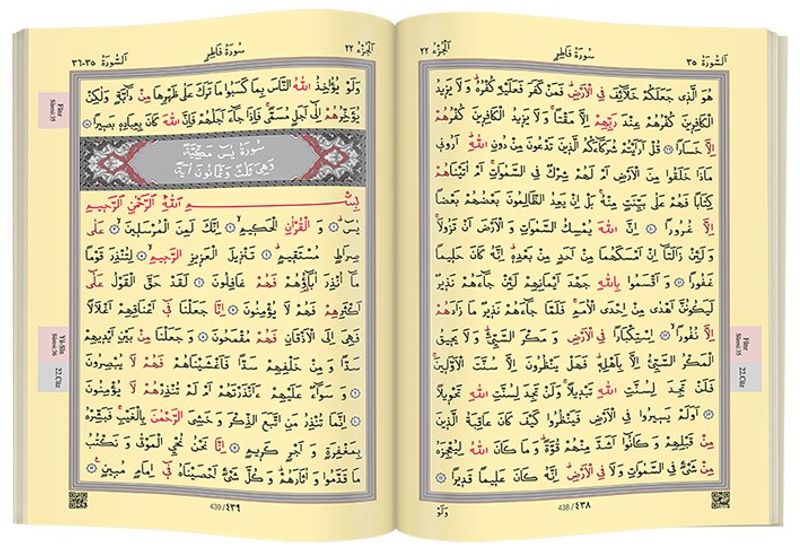 اَلسُّورَةُ ٣٥ سُورَةُ فَاطِرٍ اَلْجُزْءُ ٢٢
هُوَ الَّذِى جَعَلَكُمْ خَلَائِفَ فِى الْاَرْضِ فَمَنْ كَفَرَ فَعَلَيْهِ كُفْرُهُ وَلَا يَزِيدُ
الْكَافِرِينَ كُفْرُهُمْ عِنْدَ رَبِّهِمْ اِلَّا مَقْتًا وَلَا يَزِيدُ الْكَافِرِينَ كُفْرُهُمْ
اِلَّا خَسَارًا ٣٩ قُلْ اَرَاَيْتُمْ شُرَكَاءَكُمُ الَّذِينَ تَدْعُونَ مِنْ دُونِ اللّٰهِ اَرُونِى
مَاذَا خَلَقُوا مِنَ الْاَرْضِ اَمْ لَهُمْ شِرْكٌ فِى السَّمٰوَاتِ اَمْ اٰتَيْنَاهُمْ
كِتَابًا فَهُمْ عَلٰى بَيِّنَتٍ مِنْهُ بَلْ اِنْ يَعِدُ الظَّالِمُونَ بَعْضُهُمْ بَعْضًا
اِلَّا غُرُورًا ٤٠ اِنَّ اللّٰهَ يُمْسِكُ السَّمٰوَاتِ وَ الْاَرْضَ اَنْ تَزُولَا
وَ لَئِنْ زَالَتَا اِنْ اَمْسَكَهُمَا مِنْ اَحَدٍ مِنْ بَعْدِهِ اِنَّهُ كَانَ حَلِيمًا
غَفُورًا ٤١ وَ اَقْسَمُوا بِاللّٰهِ جَهْدَ اَيْمَانِهِمْ لَئِنْ جَاءَهُمْ نَذِيرٌ
لَيَكُونُنَّ اَهْدٰى مِنْ اِحْدَى الْاُمَمِ فَلَمَّا جَاءَهُمْ نَذِيرٌ مَا زَادَهُمْ
اِلَّا نُفُورًا ٤٢ اِسْتِكْبَارًا فِى الْاَرْضِ وَ مَكْرَ السَّيِّئِ وَلَا يَحِيقُ
الْمَكْرُ السَّيِّئُ اِلَّا بِاَهْلِهِ فَهَلْ يَنْظُرُونَ اِلَّا سُنَّتَ الْاَوَّلِينَ
فَلَنْ تَجِدَ لِسُنَّتِ اللّٰهِ تَبْدِيلًا وَ لَنْ تَجِدَ لِسُنَّتِ اللّٰهِ تَحْوِيلًا
٤٣ اَوَلَمْ يَسِيرُوا فِى الْاَرْضِ فَيَنْظُرُوا كَيْفَ كَانَ عَاقِبَةُ الَّذِينَ
مِنْ قَبْلِهِمْ وَ كَانُوا اَشَدَّ مِنْهُمْ قُوَّةً وَ مَا كَانَ اللّٰهُ لِيُعْجِزَهُ
مِنْ شَىْءٍ فِى السَّمٰوَاتِ وَ لَا فِى الْاَرْضِ اِنَّهُ كَانَ عَلِيمًا قَدِيرًا ٤٤
438 / ٤٣٨
وَلَوْ
Fâtır
Sûresi:35
22.Cüz
اَلسُّورَةُ ٣٥-٣٦ سُورَةُ فَاطِرٍ اَلْجُزْءُ ٢٢
وَلَوْ يُؤَاخِذُ اللّٰهُ النَّاسَ بِمَا كَسَبُوا مَا تَرَكَ عَلٰى ظَهْرِهَا مِنْ دَابَّةٍ وَلٰكِنْ
يُؤَخِّرُهُمْ اِلٰى اَجَلٍ مُسَمًّى فَاِذَا جَاءَ اَجَلُهُمْ فَاِنَّ اللّٰهَ كَانَ بِعِبَادِهِ بَصِيرًا ٤٥
سُورَةُ يٰسٓ مَكِّيَّةٌ
وَهِىَ ثَلٰثٌ وَ ثَمَانُونَ اٰيَةً
بِسْمِ اللّٰهِ الرَّحْمٰنِ الرَّحِيمِ
يٰسٓ ١ وَ الْقُرْاٰنِ الْحَكِيمِ ٢ اِنَّكَ لَمِنَ الْمُرْسَلِينَ ٣ عَلٰى
صِرَاطٍ مُسْتَقِيمٍ ٤ تَنْزِيلَ الْعَزِيزِ الرَّحِيمِ ٥ لِتُنْذِرَ قَوْمًا
مَا اُنْذِرَ اٰبَاؤُهُمْ فَهُمْ غَافِلُونَ ٦ لَقَدْ حَقَّ الْقَوْلُ عَلٰى
اَكْثَرِهِمْ فَهُمْ لَا يُؤْمِنُونَ ٧ اِنَّا جَعَلْنَا فِى اَعْنَاقِهِمْ اَغْلَالًا
فَهِىَ اِلَى الْاَذْقَانِ فَهُمْ مُقْمَحُونَ ٨ وَ جَعَلْنَا مِنْ بَيْنِ اَيْدِيهِمْ
سَدًّا وَ مِنْ خَلْفِهِمْ سَدًّا فَاَغْشَيْنَاهُمْ فَهُمْ لَا يُبْصِرُونَ
٩ وَ سَوَاءٌ عَلَيْهِمْ ءَاَنْذَرْتَهُمْ اَمْ لَمْ تُنْذِرْهُمْ لَا يُؤْمِنُونَ
١٠ اِنَّمَا تُنْذِرُ مَنِ اتَّبَعَ الذِّكْرَ وَ خَشِىَ الرَّحْمٰنَ بِالْغَيْبِ فَبَشِّرْهُ
بِمَغْفِرَةٍ وَ اَجْرٍ كَرِيمٍ ١١ اِنَّا نَحْنُ نُحْيِى الْمَوْتٰى وَ نَكْتُبُ
مَا قَدَّمُوا وَ اٰثَارَهُمْ وَ كُلَّ شَىْءٍ اَحْصَيْنَاهُ فِى اِمَامٍ مُبِينٍ ١٢
439 / ٤٣٩
Fâtır
Sûresi:35
Yâ-Sîn
Sûresi:36
22.Cüz